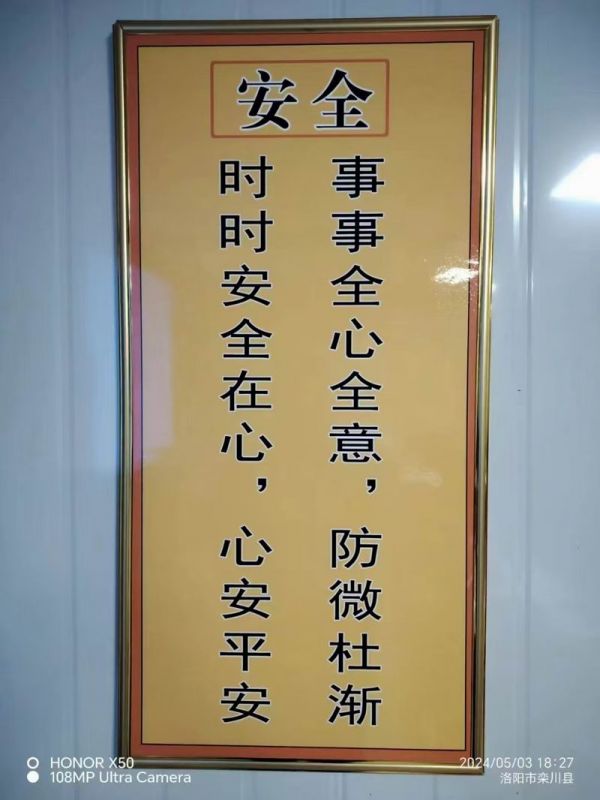 安全
事事全心全意，防微杜渐
时时安全在心，心安平安
HONOR X50
108MP Ultra Camera
2024/05/03 18:27
洛阳市栾川县